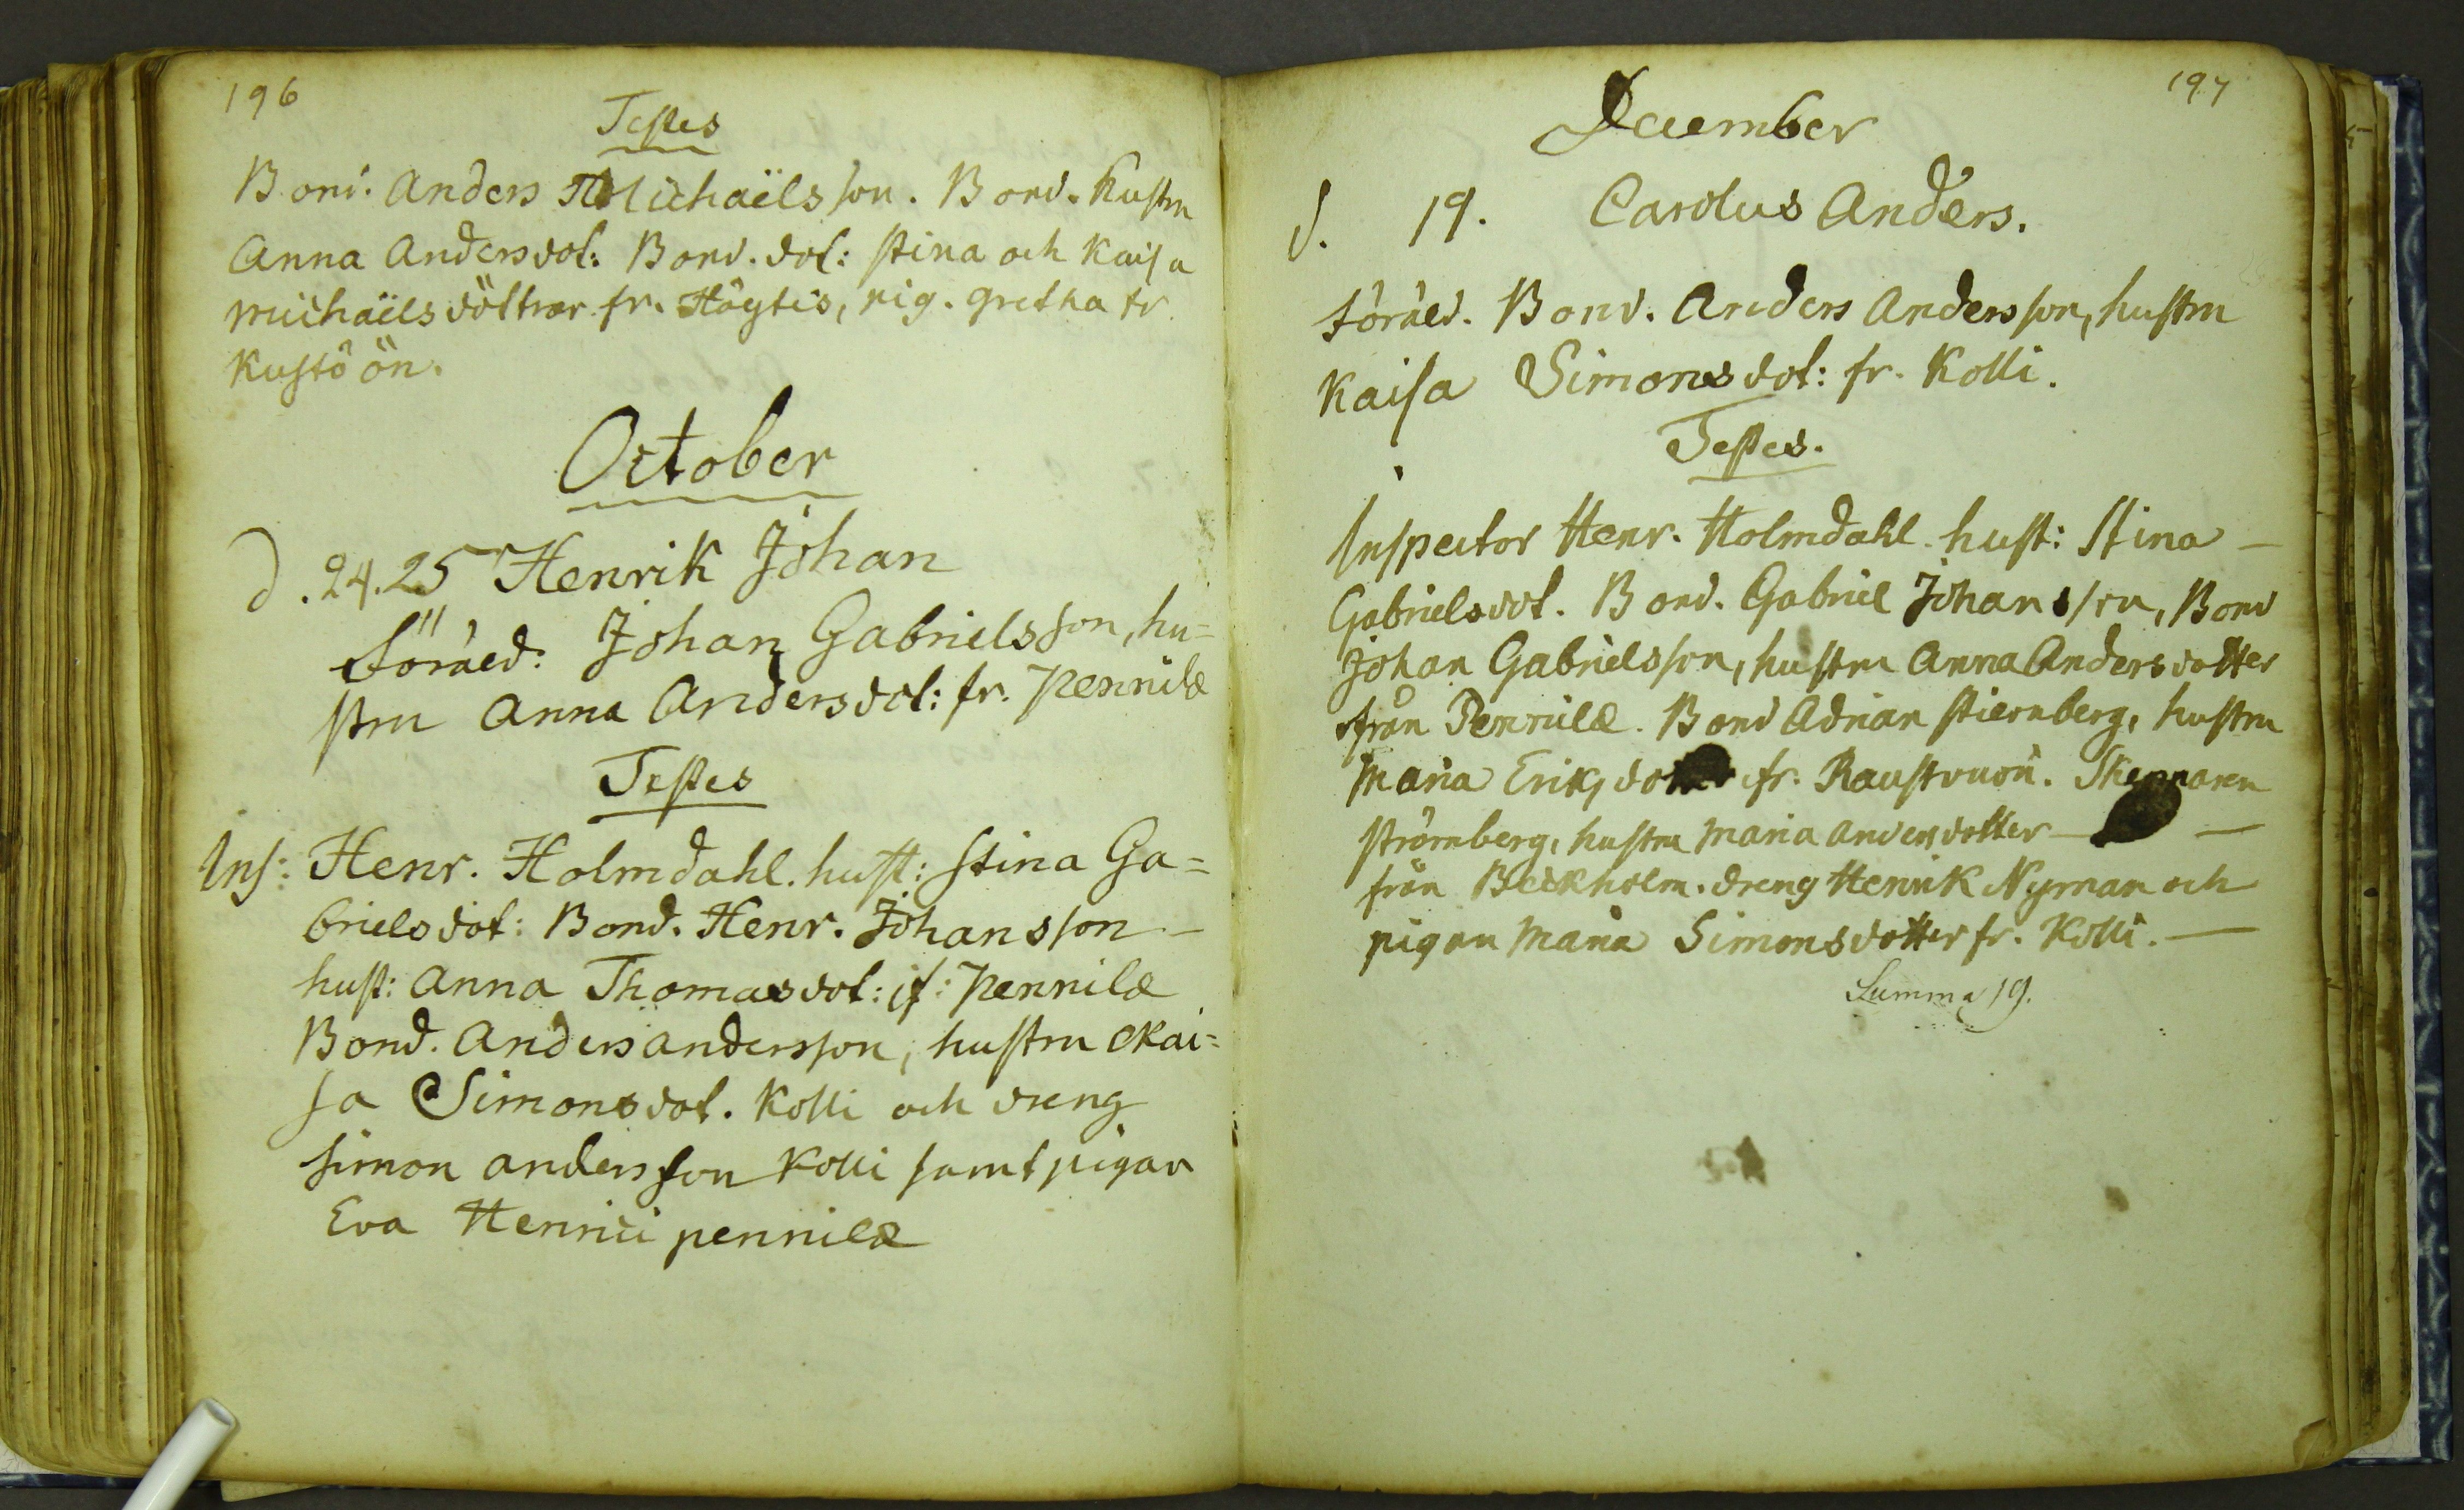 196
Testes
Bond. Anders Michaëlsson. Bond. hustru
Anna Andersdot: Bond. dot: Stina och Kaisa
Michaëlsdöttrar fr. Högtis, pig. Gretha fr.
Kustö ön.
October
d. 24. 25 Henrik Johan
Föräld: Johan Gabrielsson, hu=
stru Anna Andersdot: fr. Pennilä
Testes
Ins: Henr. Holmdahl. hust: Stina Ga=
brielsdot: Bond. Henr. Johansson —
hust: Anna Thomasdot: if: Pennilä
Bond. Anders Andersson, hustru Kai=
sa Simonsdot. Kolli och dreng
Simon Andersson Kolli samt pigan
Eva Henrici pennilä
197
December
d. 19. Carolus Anders.
Föräld. Bond. Anders Andersson, hustru
Kaisa Simonsdot: fr. Kolli.
Testes.
Inspector Henr. Holmdahl. hust: Stina —
Gabrielsdot. Bond. Gabriel Johansson, Bond
Johan Gabrielsson, hustru Anna Andersdotter
från Pennilä. Bond Adrian Stiernberg, hustru
Maria Eriksdotter fr. Raustvuori.
Strömberg, hustru Maria Andersdotter — —
från Beckholm. dreng Henrik Nyman och
pigan Maria Simonsdotter fr. Kolli. —
Summa 19.